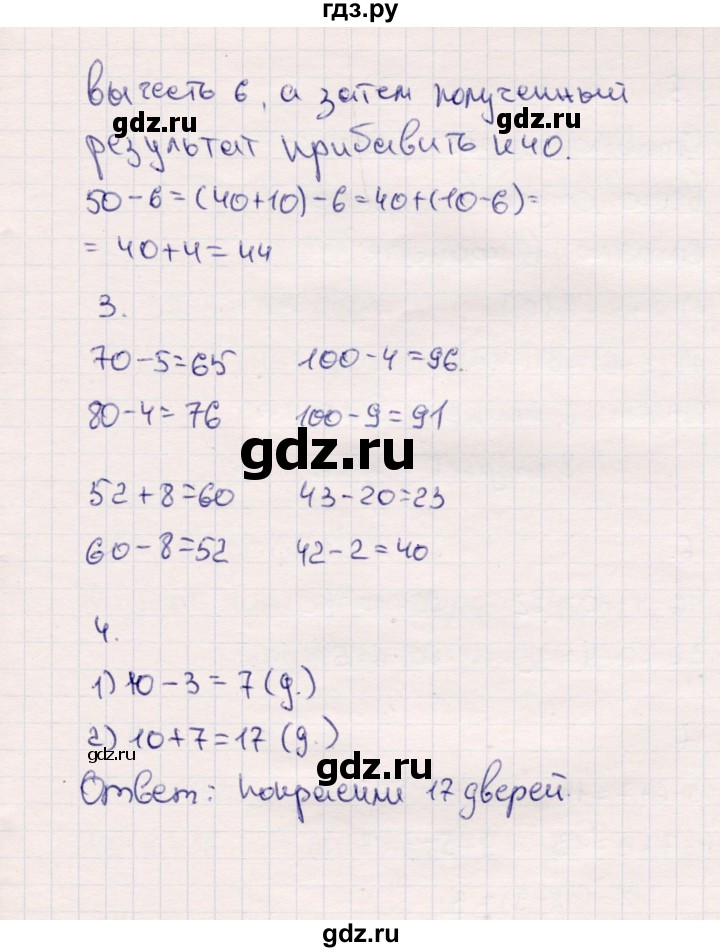 гдз.ру
вычесть 6, а затем полученный
gdz.ru gdz.ru
результат прибавить к 40.
50-6=(40+10)-6=40+(10-6)=
=40+4=44
3.
70-5=65 100-4=96.
80-4=76 100-9=91
gdz.ru
52+8=60 43-20=23
60-8=52 42-2=40
4.
1) 10-3=7 (д.)
2) 10+7=17 (д.)
gdz.ru
gdz.ru
Ответ: покрасили 17 дверей.
gdz.ru